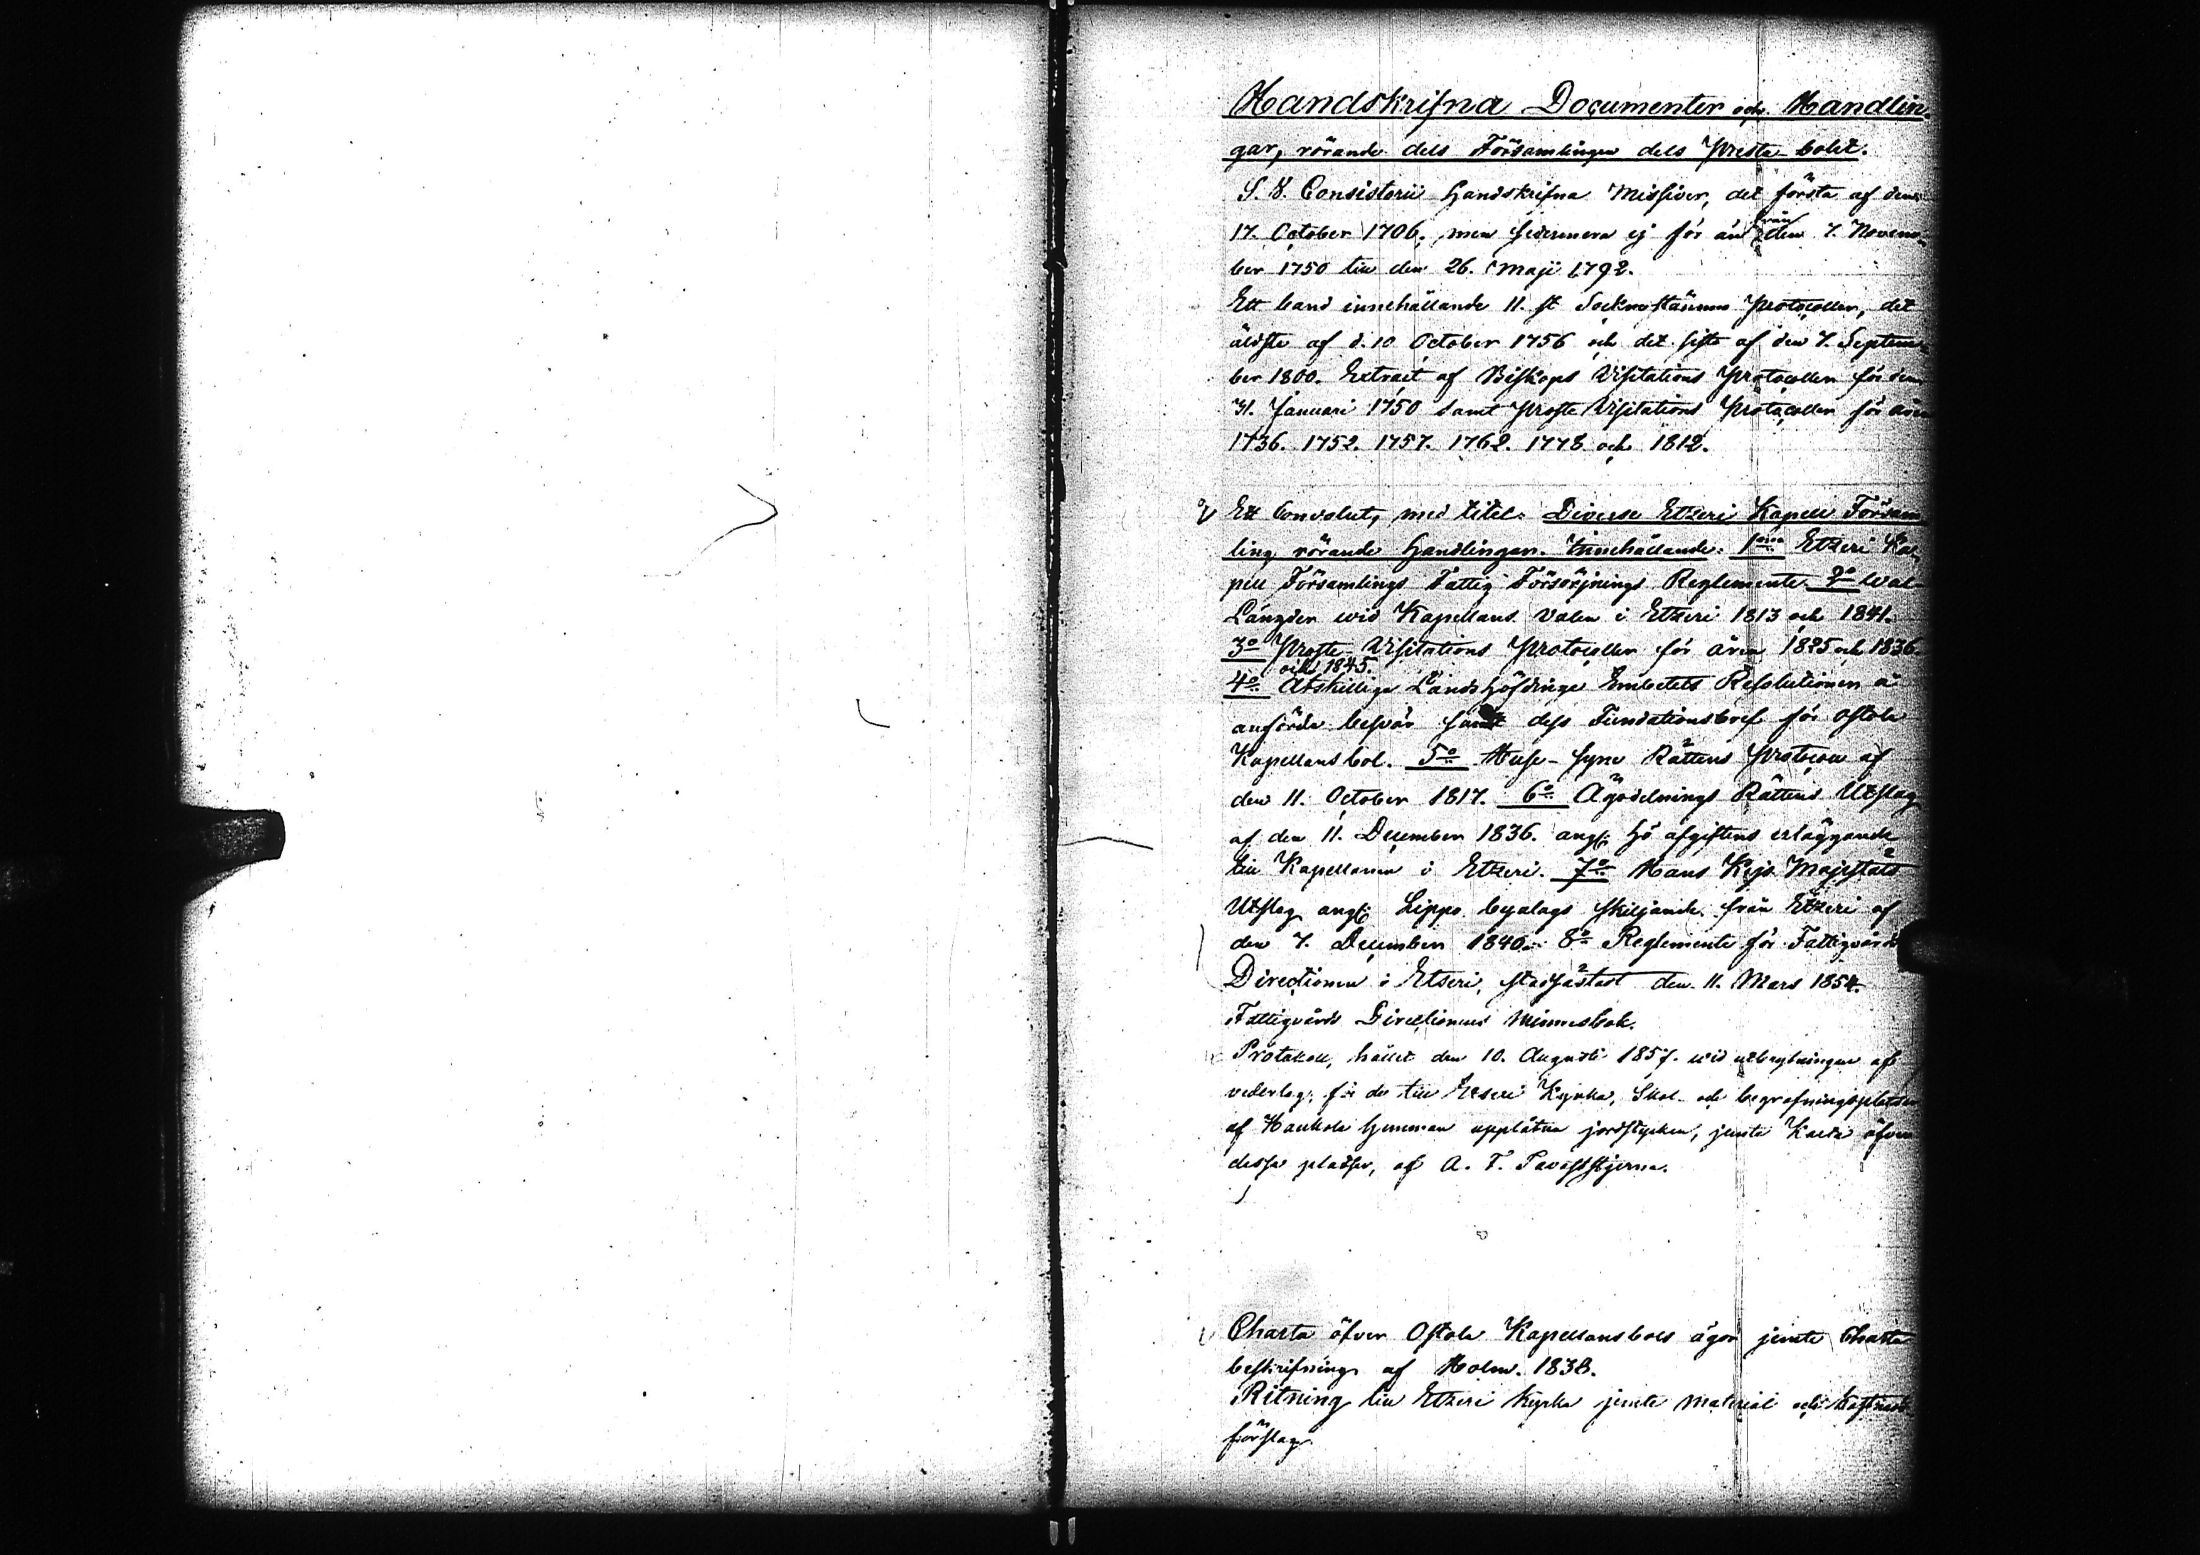 Handskrifna Documenter och Handlin-
gar, rörande dels Församlingen dels Preste-bolet.
S. V. Consistorii Handskrifna Missiver, det första af den
17. October 1706. men sedermera ej för än från den 7. Novem-
ber 1750 till den 26. Maji 1792.
Ett band innehållande 11. st Sockne stämmo Protocoller, det
äldsta af d. 10 October 1756 och det sista af den 7. Septem-
ber 1800. Extract af Biskops Visitations Protocollen för den
31. Januari 1750 samt Proste Visitations Protocollen för åren
1736. 1752. 1757. 1762. 1778 och 1812.
Ett Convolut, med titel: Diverse Etzeri Kapell Försam-
ling rörande Handlingar. Innehållande: 1mo Etzeri Ka-
pell Församlings Fattig Försörjnings Reglemente. 2o Wal-
Längder wid Kapellans valen i Etzeri 1813 och 1841.
3o Proste-Visitations Protocoller för åren 1825 och 1836
och 1845.
4o Åtskillige Landshöfdinge Embetets Resolutioner å
anförda besvär samt dess Fundationsbref för Ostola
Kapellansbol. 5o Huse-syne Rättens Protocoll af
den 11. October 1817. 6o Ägodelnings Rättens Utslag
af den 11. December 1836. ang: hö afgiftens erläggande
till Kapellanen i Etzeri. 7o Hans Kejs. Majestäts
Utslag ang: Lippo byalags skiljande från Etzeri af
den 7. December 1840. 8o Reglemente för Fattigvårds
Directionen i Etseri, stadfästadt den 11. Mars 1854.
Fattigvårds Directionens Minnesbok.
Protokoll, hållet den 10. Augusti 1857. wid utbrytningen af
vederlag, för de till Etseri Kyrka, Skol- och begrafningsplatser
af Haukola hemman upplåtna jordstycken, jemte Karta öfver
dessa platser, af A. F. Tavaststjerna.
Charta öfver Ostola Kapellansbols ägor jemte Charte
beskrifning af Holm. 1838.
Ritning till Etzeri Kyrka jemte Material och Kostnads
förslag.